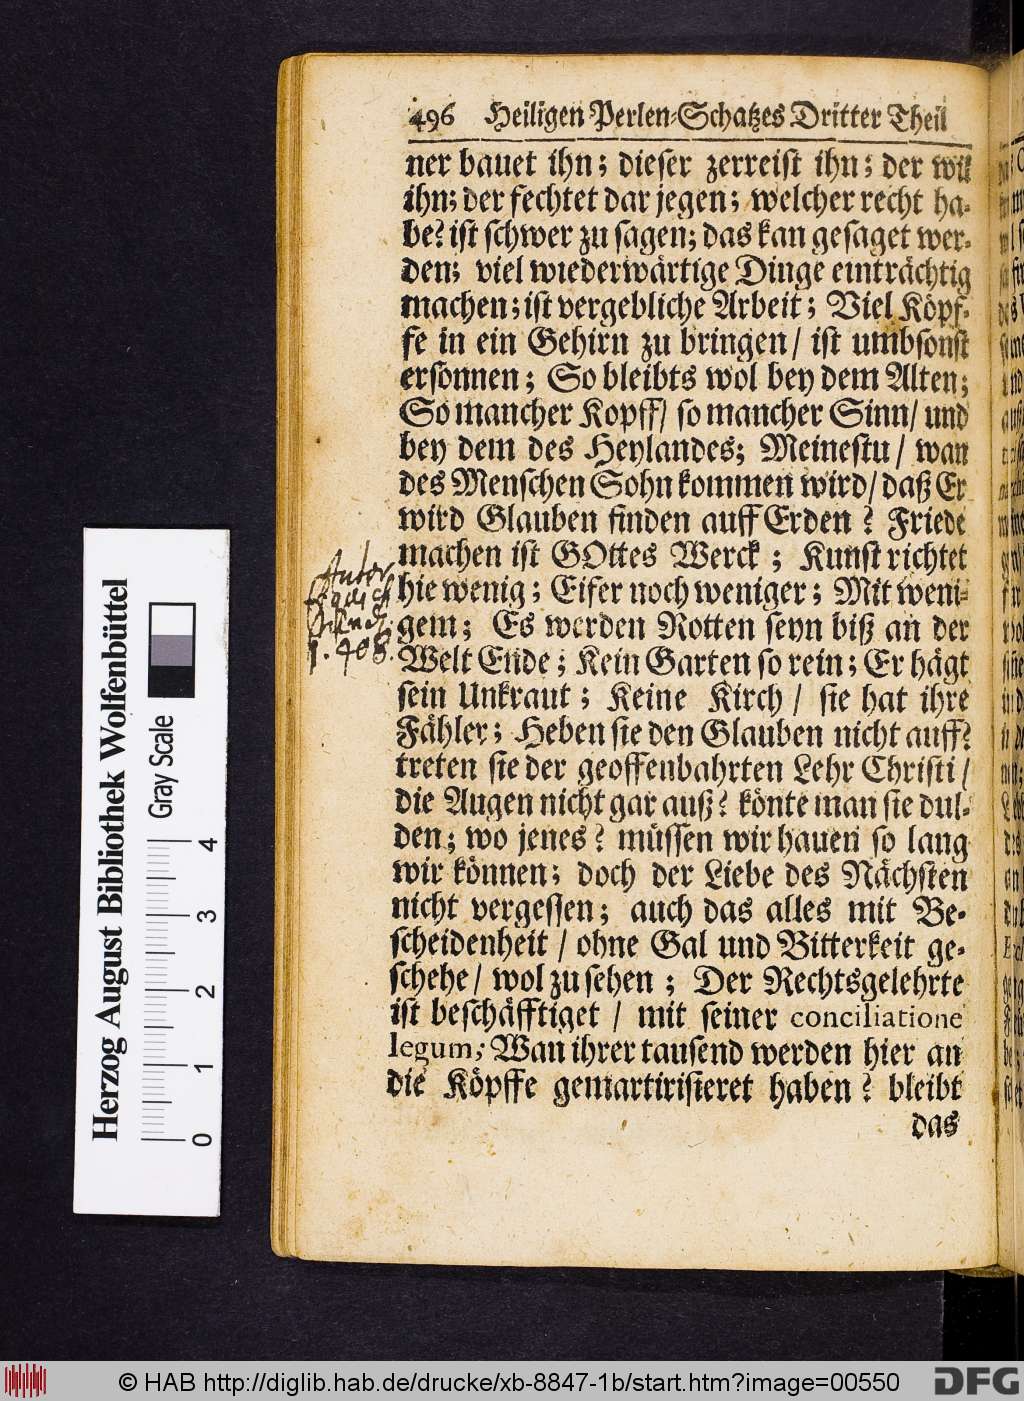 496 Heiligen Perlen-Schatzes Dritter Theil
ner bauet ihn; dieser zerreist ihn; der wil
ihn; der fechtet dar jegen; welcher recht ha-
be? ist schwer zu sagen; das kan gesaget wer-
den; viel wiederwärtige Dinge einträchtig
machen; ist vergebliche Arbeit; Viel Köpf-
fe in ein Gehirn zu bringen / ist umbsonst
ersonnen; So bleibts wol bey dem Alten;
So mancher Kopff / so mancher Sinn / und
bey dem des Heylandes; Meinestu / wan
des Menschen Sohn kommen wird / daß Er
wird Glauben finden auff Erden? Friede
machen ist GOttes Werck; Kunst richtet
hie wenig; Eifer noch weniger; Mit weni-
gem; Es werden Rotten seyn biß an der
Welt Ende; Kein Garten so rein; Er hägt
sein Unkraut; Keine Kirch / sie hat ihre
Fähler; Heben sie den Glauben nicht auff?
treten sie der geoffenbahrten Lehr Christi /
die Augen nicht gar auß? könte man sie dul-
den; wo jenes? müssen wir hauen so lang
wir können; doch der Liebe des Nächsten
nicht vergessen; auch das alles mit Be-
scheidenheit / ohne Gal und Bitterkeit ge-
schehe / wol zu sehen; Der Rechtsgelehrte
ist beschäfftiget / mit seiner conciliatione
legum; Wan ihrer tausend werden hier an
die Köpffe gemartirisieret haben? bleibt
das
Autor
408.
Herzog August Bibliothek Wolfenbüttel
Gray Scale
0 1 2 3 4
© HAB http://diglib.hab.de/drucke/xb-8847-1b/start.htm?image=00550
DFG